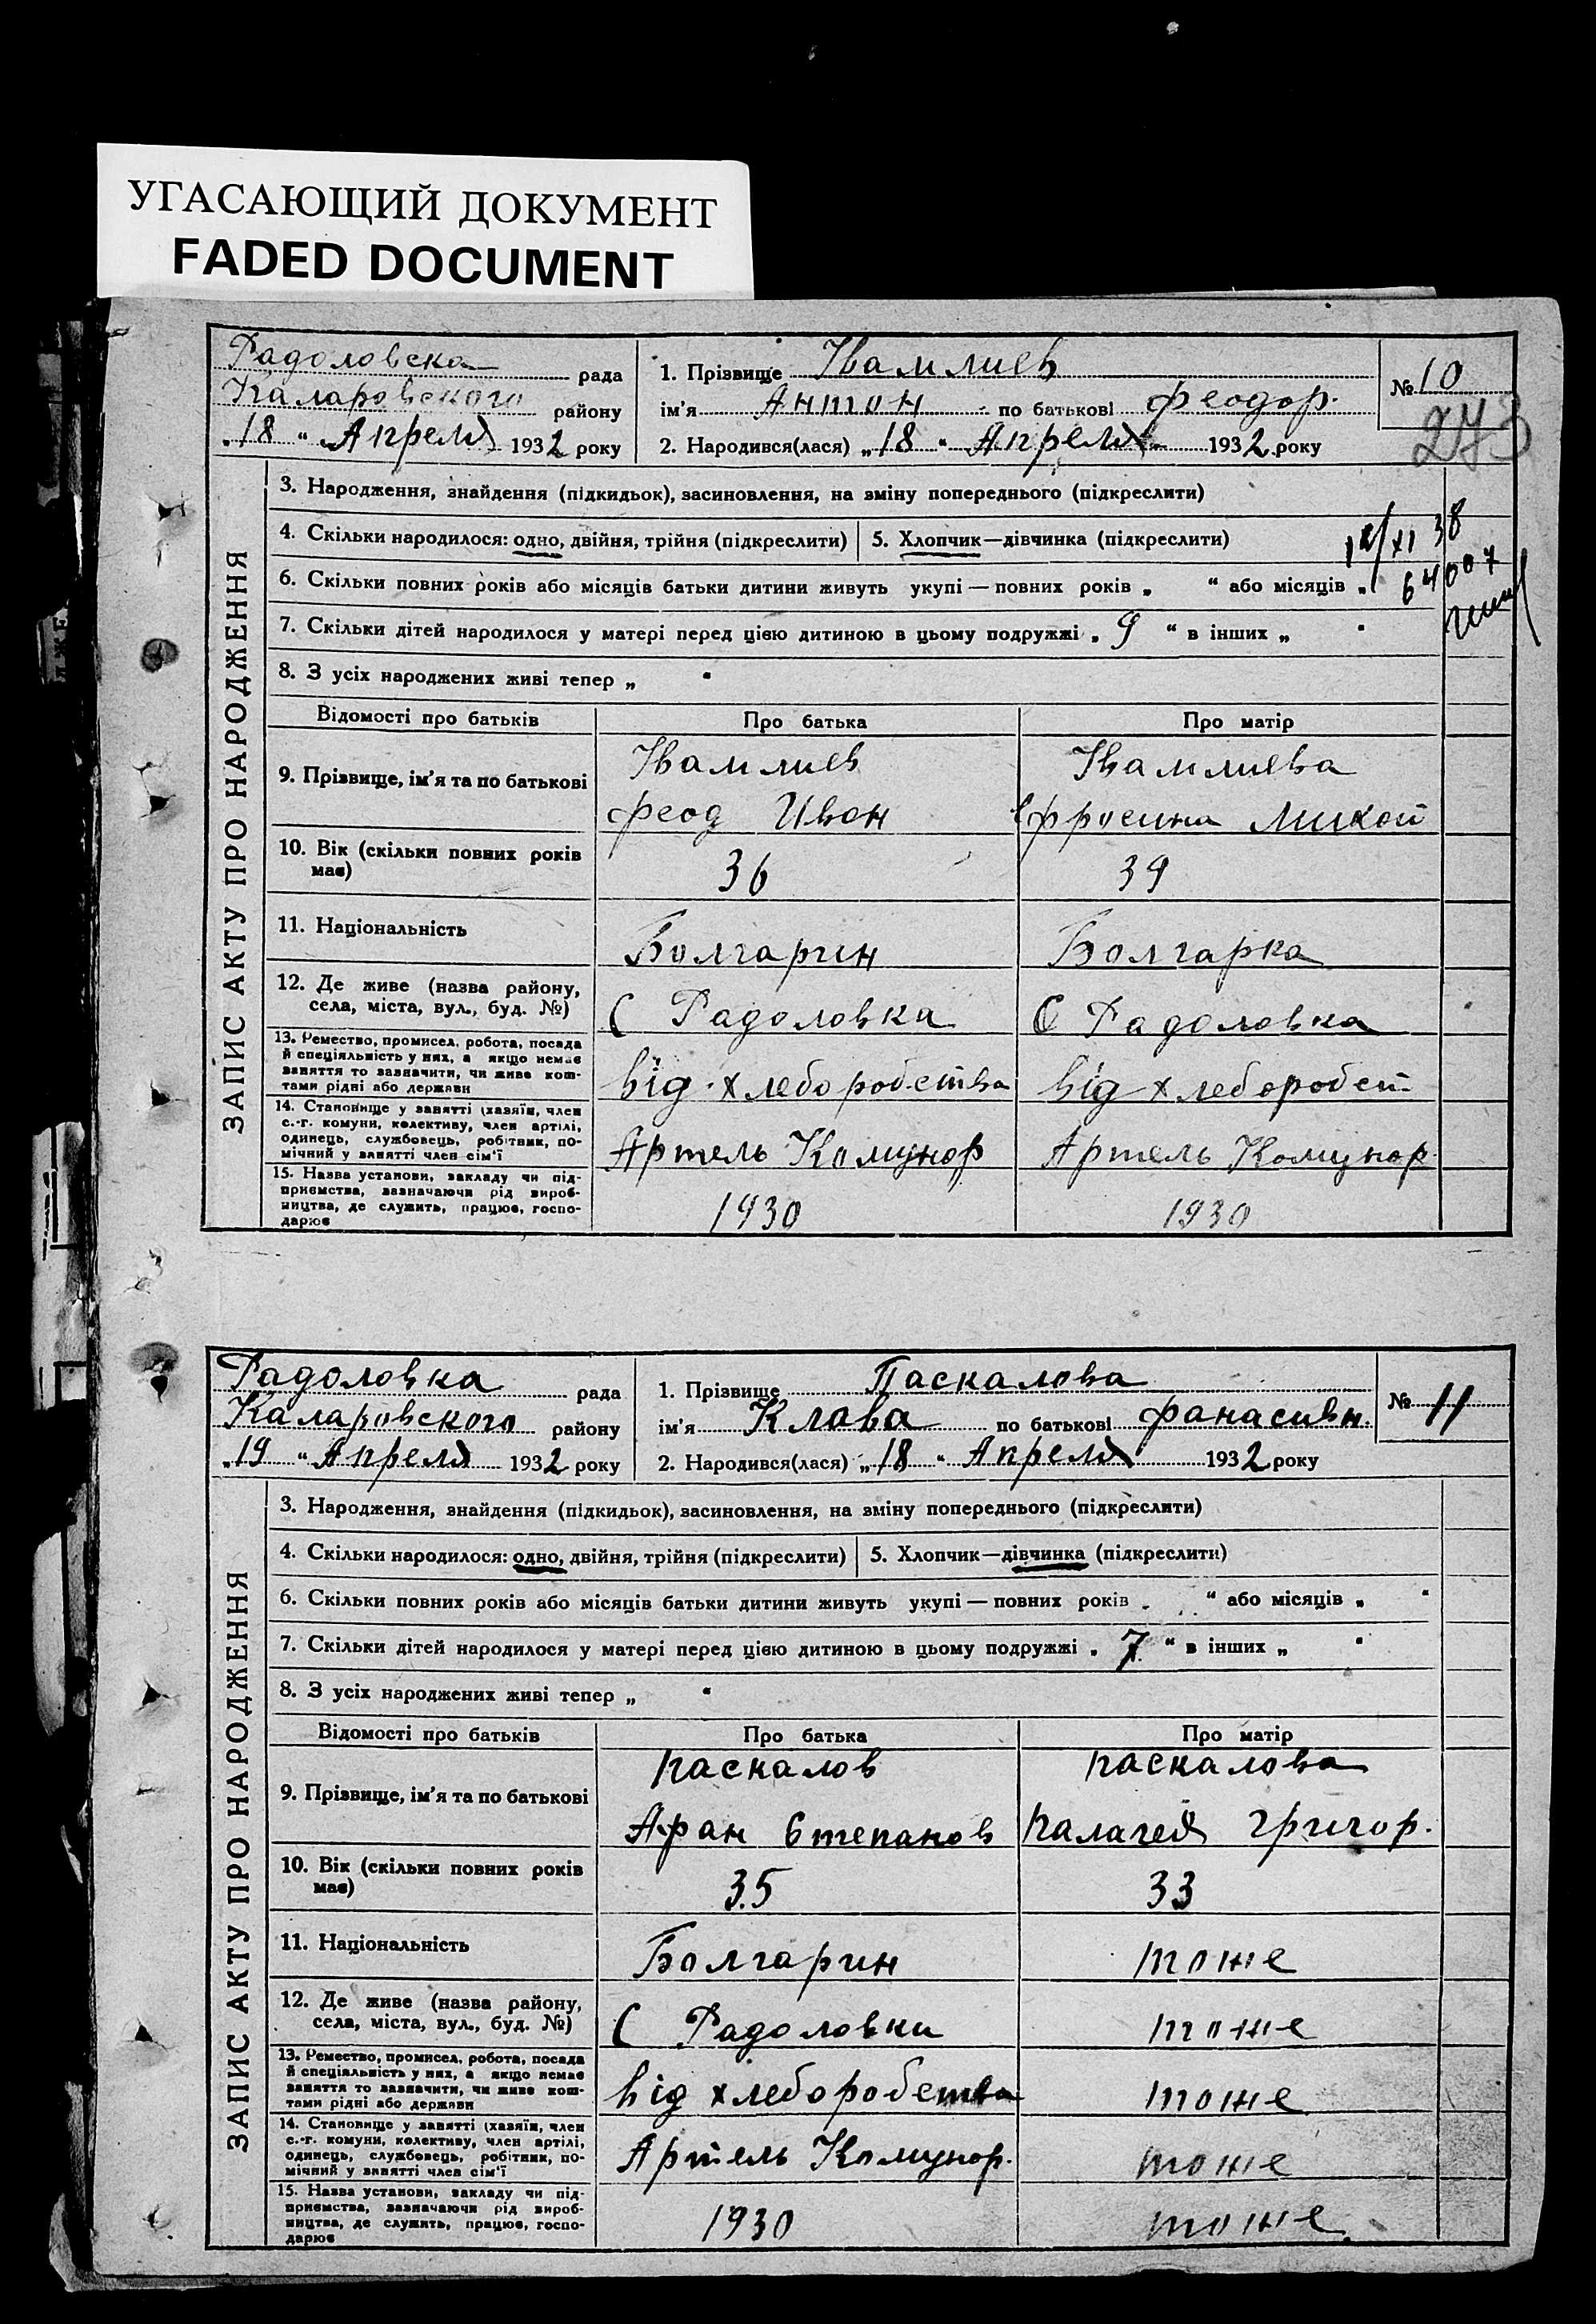 УГАСАЮЩИЙ ДОКУМЕНТ
FADED DOCUMENT
Радоловска рада
Каларовского району
„18 “ Апреля 1932 року
1. Прізвище Ивамлиев
ім'я Антон по батькові Феодор.
2. Народився(лася) „18 “ Апреля 1932 року
№ 10
273
ЗАПИС АКТУ ПРО НАРОДЖЕННЯ
3. Народження, знайдення (підкидьок), засиновлення, на зміну попереднього (підкреслити)
4. Скільки народилося: одно, двійня, трійня (підкреслити)
5. Хлопчик—дівчинка (підкреслити)
12/XI 38
6. Скільки повних років або місяців батьки дитини живуть укупі — повних років „ “ або місяців „
64007
7. Скільки дітей народилося у матері перед цією дитиною в цьому подружжі „ 9 “ в інших „ “
8. З усіх народжених живі тепер „ “
Відомості про батьків Про батька Про матір
9. Прізвище, ім'я та по батькові
Ивамлиев Ивамлиева
Феод Иван Ефросина Микол
10. Вік (скільки повних років має)
36 39
11. Національність
Болгарин Болгарка
12. Де живе (назва району, села, міста, вул., буд. №)
С Радоловка С Радоловка
13. Ремество, промисел, робота, посада й спеціяльність у них, а якщо немає заняття то зазначити, чи живе коштами рідні або держави
від хлеборобства від хлеборобст
14. Становище у занятті (хазяїн, член с.-г. комуни, колективу, член артілі, одинець, службовець, робітник, помічний у занятті член сім'ї
Артель Комунор Артель Комунор
15. Назва установи, закладу чи підприємства, зазначаючи рід виробництва, де служить, працює, господарює
1930 1930
Радоловка рада
Каларовского району
„19 “ Апреля 1932 року
1. Прізвище Паскалова
ім'я Клава по батькові Фанасивн.
2. Народився(лася) „18 “ Апреля 1932 року
№ 11
ЗАПИС АКТУ ПРО НАРОДЖЕННЯ
3. Народження, знайдення (підкидьок), засиновлення, на зміну попереднього (підкреслити)
4. Скільки народилося: одно, двійня, трійня (підкреслити)
5. Хлопчик—дівчинка (підкреслити)
6. Скільки повних років або місяців батьки дитини живуть укупі — повних років „ “ або місяців „ “
7. Скільки дітей народилося у матері перед цією дитиною в цьому подружжі „ 7 “ в інших „ “
8. З усіх народжених живі тепер „ “
Відомості про батьків Про батька Про матір
9. Прізвище, ім'я та по батькові
Паскалов Паскалова
Афан Степанов Палагея Григор.
10. Вік (скільки повних років має)
35 33
11. Національність
Болгарин тоже
12. Де живе (назва району, села, міста, вул., буд. №)
С Радоловки тоже
13. Ремество, промисел, робота, посада й спеціяльність у них, а якщо немає заняття то зазначити, чи живе коштами рідні або держави
від хлеборобства тоже
14. Становище у занятті (хазяїн, член с.-г. комуни, колективу, член артілі, одинець, службовець, робітник, помічний у занятті член сім'ї
Артель Комунор. тоже
15. Назва установи, закладу чи підприємства, зазначаючи рід виробництва, де служить, працює, господарює
1930 тоже